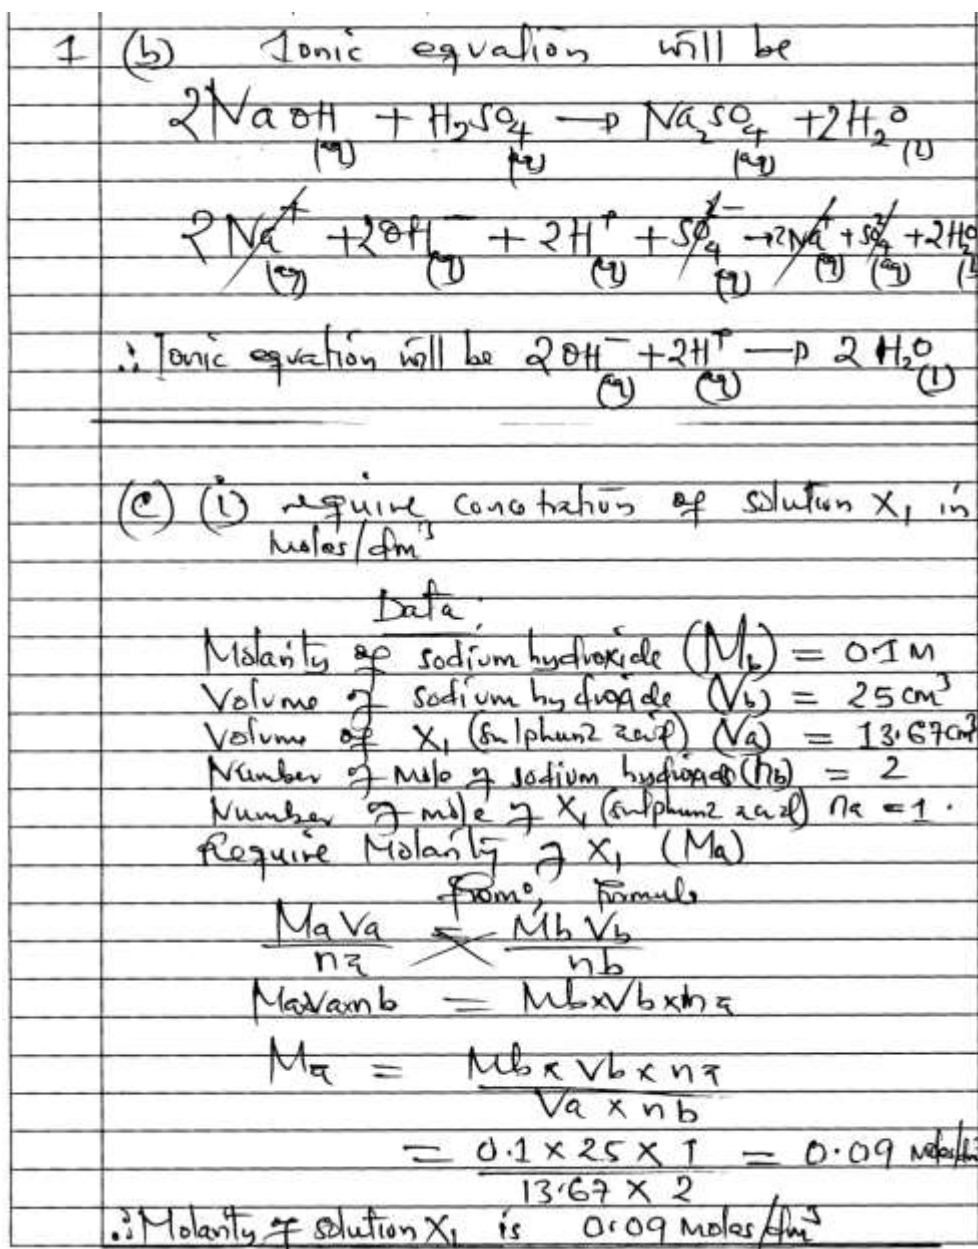 1 (b) Ionic equation will be
2NaOH(aq) + H₂SO₄(aq) → Na₂SO₄(aq) + 2H₂O(l)
2Na⁺(aq) + 2OH⁻(aq) + 2H⁺(aq) + SO₄²⁻(aq) → 2Na⁺(aq) + SO₄²⁻(aq) + 2H₂O(l)
∴ Ionic equation will be 2OH⁻(aq) + 2H⁺(aq) → 2H₂O(l)
(c) (i) require concetration of solution X₁ in
moles/dm³
Data.
Molarity of sodium hydroxide (Mb) = 0.1 M
Volume of sodium hydroxide (Vb) = 25 cm³
Volume of X₁ (sulphuric acid) (Va) = 13.67cm³
Number of mole of sodium hydroxide (nb) = 2
Number of mole of X₁ (sulphuric acid) na = 1.
Require Molarity of X₁ (Ma)
from; formula
MaVa/na = MbVb/nb
MaxVaxnb = MbxVbxna
Ma = Mb x Vb x na
Va x nb
= 0.1 × 25 × 1 = 0.09 moles/dm³
13.67 × 2
∴ Molarity of solution X₁ is 0.09 moles/dm³